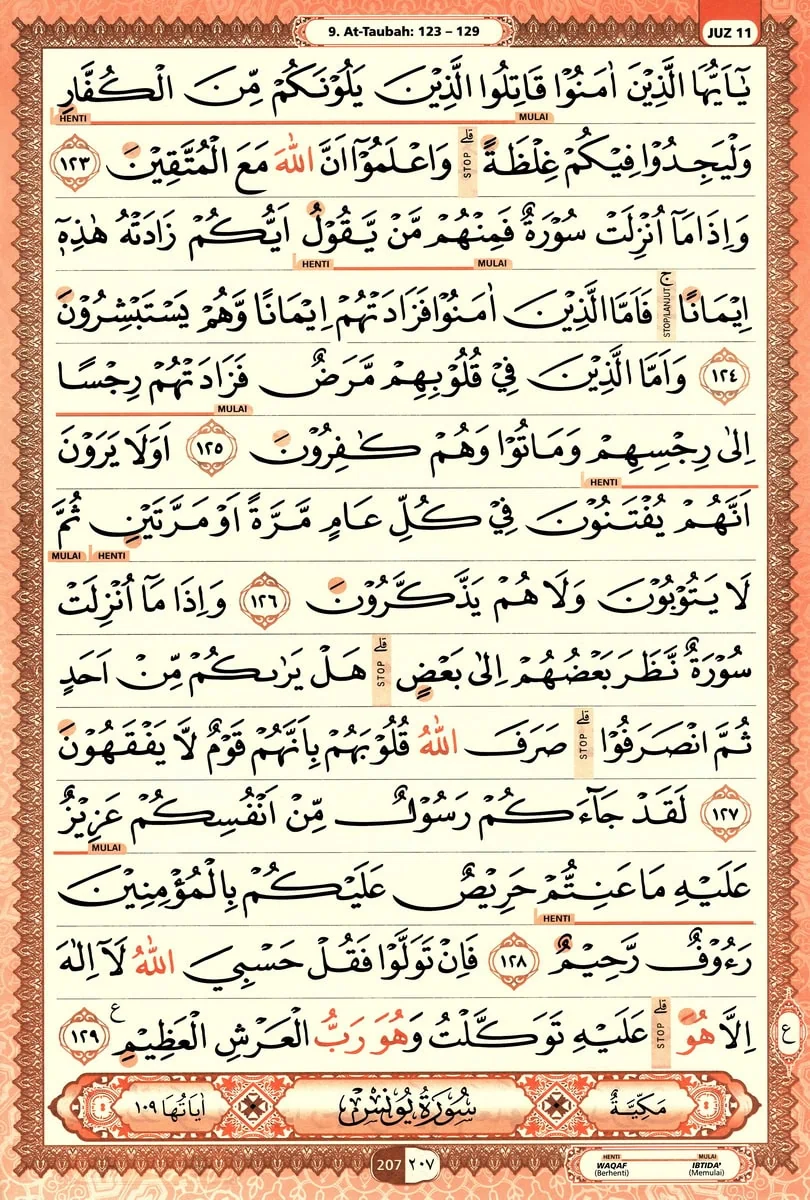 9. At-Taubah: 123 – 129
JUZ 11
يٰٓاَيُّهَا الَّذِيْنَ اٰمَنُوْا قَاتِلُوا الَّذِيْنَ يَلُوْنَكُمْ مِّنَ الْكُفَّارِ
HENTI MULAI
وَلْيَجِدُوْا فِيْكُمْ غِلْظَةً ۗ STOP وَاعْلَمُوْٓا اَنَّ اللّٰهَ مَعَ الْمُتَّقِيْنَ ١٢٣
وَاِذَا مَآ اُنْزِلَتْ سُوْرَةٌ فَمِنْهُمْ مَّنْ يَّقُوْلُ اَيُّكُمْ زَادَتْهُ هٰذِهٖٓ
HENTI MULAI
اِيْمَانًا ۚ STOP/LANJUT فَاَمَّا الَّذِيْنَ اٰمَنُوْا فَزَادَتْهُمْ اِيْمَانًا وَّهُمْ يَسْتَبْشِرُوْنَ
١٢٤ وَاَمَّا الَّذِيْنَ فِيْ قُلُوْبِهِمْ مَّرَضٌ فَزَادَتْهُمْ رِجْسًا
MULAI
اِلٰى رِجْسِهِمْ وَمَاتُوْا وَهُمْ كٰفِرُوْنَ ١٢٥ اَوَلَا يَرَوْنَ
HENTI
اَنَّهُمْ يُفْتَنُوْنَ فِيْ كُلِّ عَامٍ مَّرَّةً اَوْ مَرَّتَيْنِ ثُمَّ
MULAI HENTI
لَا يَتُوْبُوْنَ وَلَا هُمْ يَذَّكَّرُوْنَ ١٢٦ وَاِذَا مَآ اُنْزِلَتْ
سُوْرَةٌ نَّظَرَ بَعْضُهُمْ اِلٰى بَعْضٍ ۗ STOP هَلْ يَرٰىكُمْ مِّنْ اَحَدٍ
ثُمَّ انْصَرَفُوْا ۗ STOP صَرَفَ اللّٰهُ قُلُوْبَهُمْ بِاَنَّهُمْ قَوْمٌ لَّا يَفْقَهُوْنَ
١٢٧ لَقَدْ جَاۤءَكُمْ رَسُوْلٌ مِّنْ اَنْفُسِكُمْ عَزِيْزٌ
MULAI
عَلَيْهِ مَا عَنِتُّمْ حَرِيْصٌ عَلَيْكُمْ بِالْمُؤْمِنِيْنَ
HENTI
رَءُوْفٌ رَّحِيْمٌ ١٢٨ فَاِنْ تَوَلَّوْا فَقُلْ حَسْبِيَ اللّٰهُ لَآ اِلٰهَ
اِلَّا هُوَ ۗ STOP عَلَيْهِ تَوَكَّلْتُ وَهُوَ رَبُّ الْعَرْشِ الْعَظِيْمِ ࣖ ١٢٩
ع
مَكِّيَّةٌ سُوْرَةُ يُوْنُسَ اٰيَاتُهَا ١٠٩
207 ٢٠٧
HENTI MULAI
WAQAF IBTIDA'
(Berhenti) (Memulai)